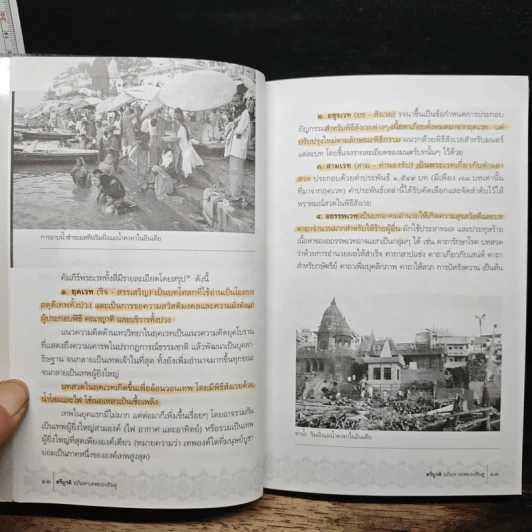 การอาบน้ำชำระมลทินริมฝั่งแม่น้ำคงคาในอินเดีย
คัมภีร์พระเวททั้งสี่มีรายละเอียดโดยสรุป ดังนี้
๑. ฤคเวท (ริจ - สรรเสริญ) เป็นบทโศลกที่ใช้อ่านเป็นโองการ
สดุดีเทพทั้งปวง และเป็นการขอความสวัสดิมงคลและความมั่งคั่งแก่
ผู้ประกอบพิธี คณาญาติ และบริวารทั้งปวง
แนวความคิดด้านเทววิทยาในฤคเวทเป็นแนวความคิดยุคโบราณ
ที่แสดงถึงความเคารพในปรากฏการณ์ธรรมชาติ แล้วพัฒนาเป็นบุคลา-
ธิษฐาน จนกลายเป็นเทพเจ้าในที่สุด ทั้งยังเพิ่มอำนาจมากขึ้นทุกขณะ
จนกลายเป็นเทพผู้ยิ่งใหญ่
บทสวดในฤคเวทเกิดขึ้นเพื่ออ้อนวอนเทพ โดยมีพิธีสังเวยด้วย
น้ำโสมและไฟ ใช้เนยเหลวเป็นเชื้อเพลิง
เทพในยุคแรกมีไม่มาก แต่ต่อมาก็เพิ่มขึ้นเรื่อยๆ โดยอาจรวมกัน
เป็นเทพผู้ยิ่งใหญ่สามองค์ (ไฟ อากาศ และอาทิตย์) หรือรวมเป็นเทพ
ผู้ยิ่งใหญ่ที่สุดเพียงองค์เดียว (หมายความว่า เทพองค์ใดที่มนุษย์บูชา
ย่อมเป็นภาคหนึ่งขององค์เทพสูงสุด)
๑๒ ตรีมูรติ อภิมหาเทพของฮินดู
๒. ยชุรเวท (ยช - สังเวย) รจนาขึ้นเป็นข้อกำหนดการประกอบ
ยัญกรรมสำหรับพิธีสังเวยต่างๆ เนื้อหาเกือบทั้งหมดมาจากฤคเวท แต่
ปรับปรุงใหม่ตามลักษณะพิธีกรรม ผนวกด้วยพิธีสังเวยสำหรับมนตร์
แต่ละบท โดยชี้แจงรายละเอียดของมนตร์บทนั้นๆ ไว้ด้วย
๓. สามเวท (สาม - ทำนองขับ) เป็นพระเวทเกี่ยวกับทำนอง
สวด ประกอบด้วยคำประพันธ์ ๑,๕๔๙ บท (มีเพียง ๗๘ บทเท่านั้น
ที่มาจากฤคเวท) คำประพันธ์เหล่านี้ได้รับคัดเลือกและจัดลำดับไว้ให้
พราหมณ์สวดในพิธีสังเวย
๔. อถรรพเวท เป็นบทอาคมอำนวยให้เกิดความสุขสวัสดีและบท
คาถาจำนวนมากสำหรับให้ร้ายผู้อื่น มักใช้ประสาทผล และประทุษร้าย
เนื้อหาของอถรรพเวทอาจแยกเป็นกลุ่มๆ ได้ เช่น คาถารักษาโรค บทสวด
ว่าด้วยการอำนวยผลให้สำเร็จ คาถาสาปแช่ง คาถาเกี่ยวกับเสน่ห์ คาถา
สำหรับกษัตริย์ คาถาเพิ่มบุคลิกภาพ คาถาให้ลาภ การปัดรังควาน เป็นต้น
ท่าน้ำ ริมฝั่งแม่น้ำคงคาในอินเดีย
ตรีมูรติ อภิมหาเทพของฮินดู ๑๓